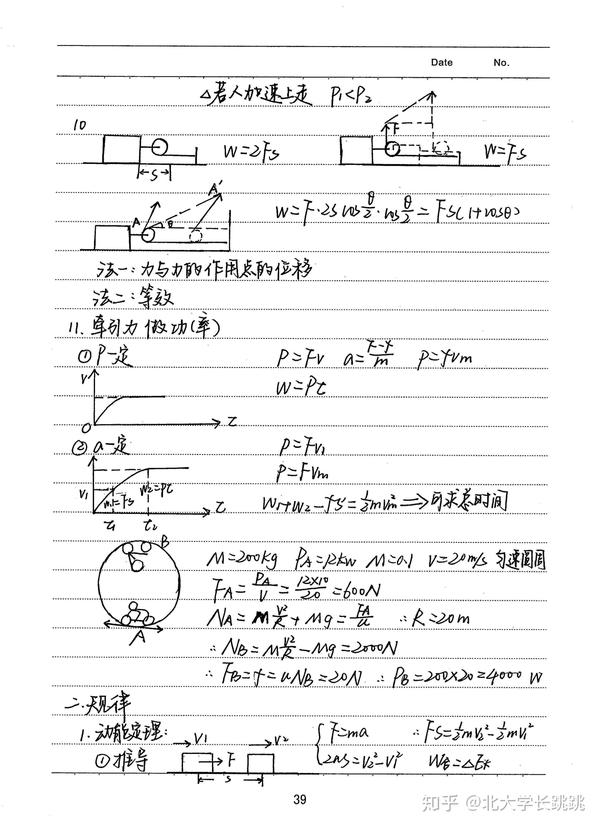 Date No.
△若人加速上走 P₁<P₂
10 S W=2FS F W=FS
A A' θ W=F·2S cos θ/2 · cos θ/2 = FS(1+cosθ)
法一:力与力的作用点的位移
法二:等效
11. 牵引力做功(率)
① P一定 P=Fv a=F-f/m P=fvm
V O t W=Pt
② a一定 P=Fv₁
V V₁ W₁=FS W₂=Pt t₁ t₂ t P=Fvm
W₁+W₂-fS=½mvm² ⟹ 可求总时间
B A M=200kg PA=12kw M=0.1 V=20m/s 匀速圆周
FA=PA/V=12×10/20=600N
NA=M V²/R+Mg=FA/u ∴R=20m
∴NB=M V²/R-Mg=2000N
∴FB=f=uNB=20N ∴PB=200×20=4000 W
二.规律
1.动能定理: V1 V2 { F=ma ∴FS=½mV₂²-½mV₁²
①推导 F S 2as=V₂²-V₁² W合=△Ek
39
知乎 @北大学长跳跳